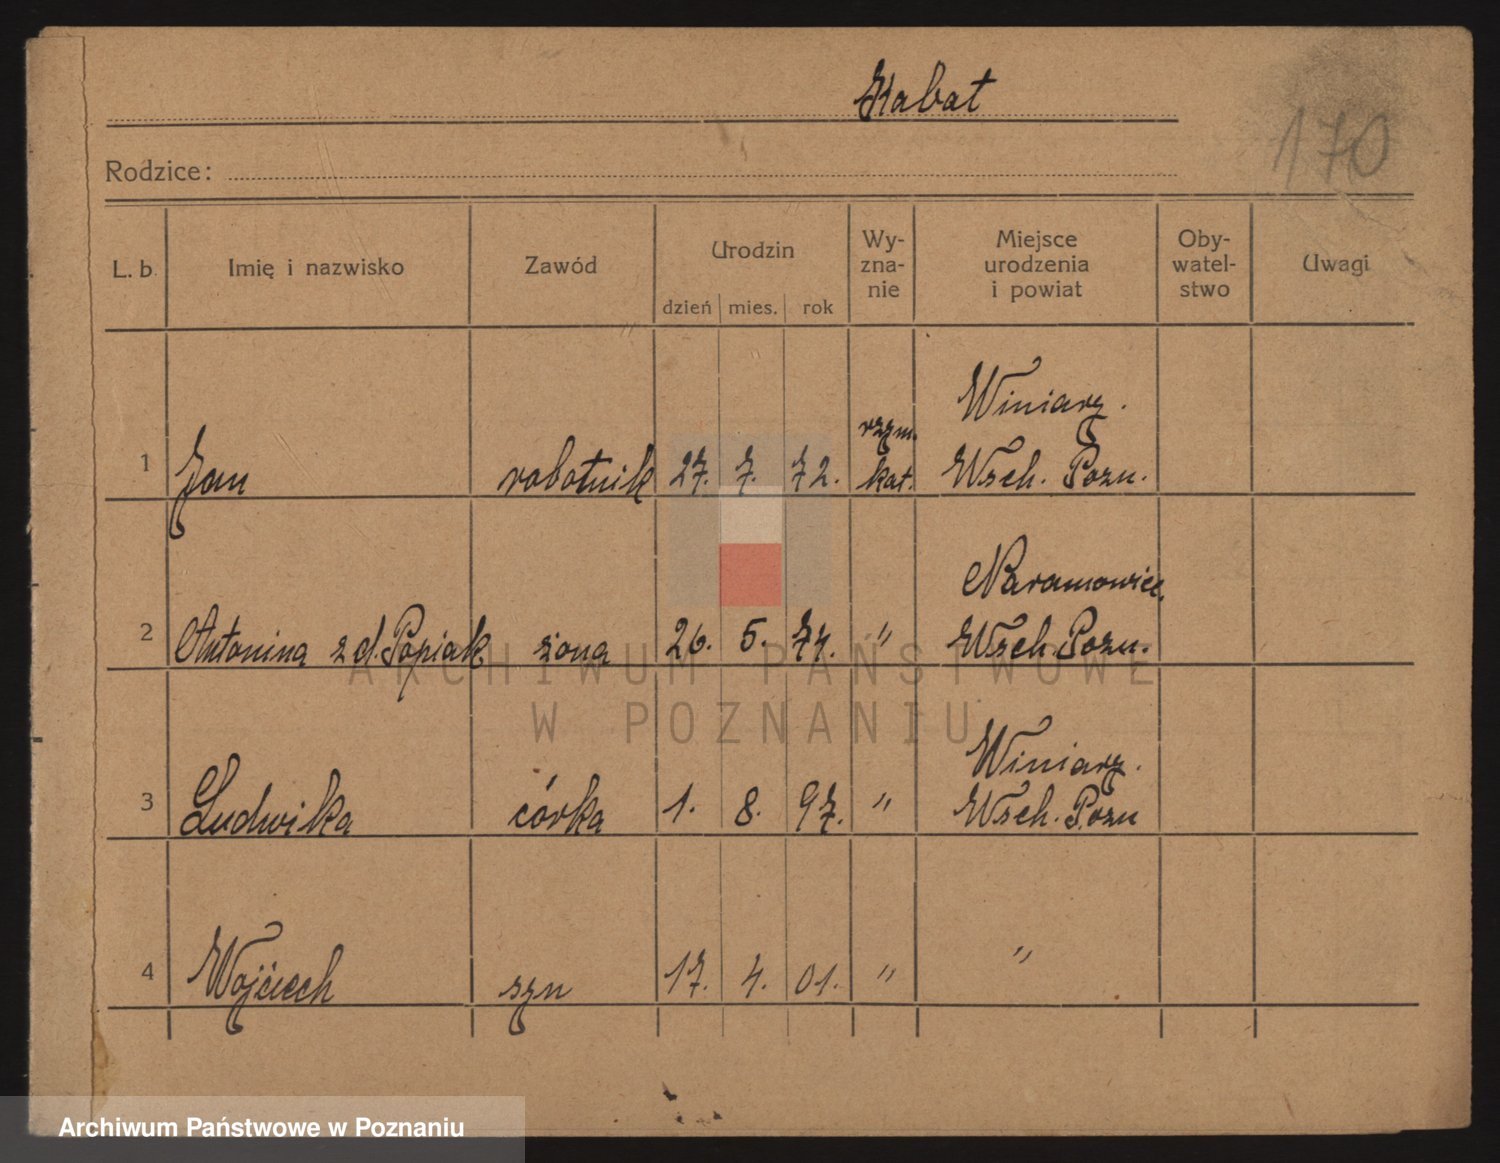 Kabat
170
Rodzice:
L. b. Imię i nazwisko Zawód Urodzin Wy-zna-nie Miejsce urodzenia i powiat Oby-watel-stwo Uwagi
dzień mies. rok
Winiarz.
rzym.
1 Jan robotnik 27. 7. 72. kat. Wsch. Pozn.
Naramowice.
2 Antonina z d. Popiak żona 26. 5. 74. " Wsch. Pozn.
ARCHIWUM PAŃSTWOWE
W POZNANIU
Winiarz.
3 Ludwika córka 1. 8. 97. " Wsch. Pozn
4 Wojciech syn 17. 4. 01. " "
Archiwum Państwowe w Poznaniu